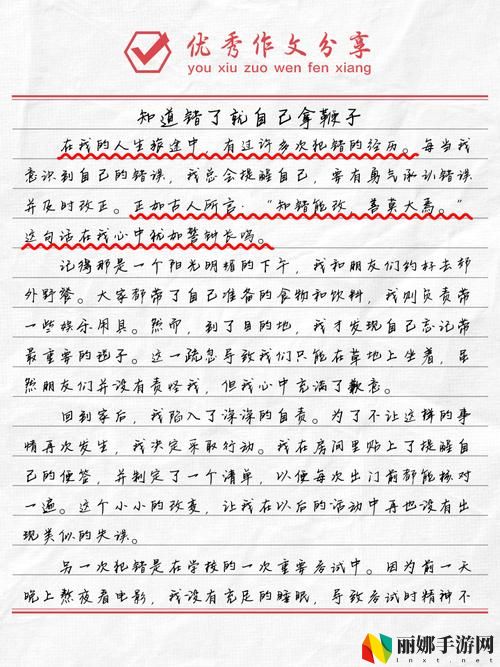 优秀作文分享
you xiu zuo wen fen xiang
知道错了就自己拿鞭子
在我的人生旅途中，有过许多次犯错的经历。每当我
意识到自己的错误，我总会提醒自己，要有勇气承认错误
并及时改正。正如古人所言：“知错能改，善莫大焉。”
这句话在我心中犹如警钟长鸣。
记得那是一个阳光明媚的下午，我和朋友们约好去郊
外野餐。大家都带了自己准备的食物和饮料，我则负责带
一些娱乐用具。然而，到了目的地，我才发现自己忘记带
最重要的毯子。这一疏忽导致我们只能在草地上坐着，虽
然朋友们并没有责怪我，但我心中充满了歉意。
回到家后，我陷入了深深的自责。为了不让这样的事
情再次发生，我决定采取行动。我在房间里贴上了提醒自
己的便签，并制定了一个清单，以便每次出门前都能核对
一遍。这个小小的改变，让我在以后的活动中再也没有出
现类似的失误。
另一次犯错是在学校的一次重要考试中。因为前一天
晚上熬夜看电影，我没有充足的睡眠，导致考试时精神不
丽娜手游网
lnxt.net